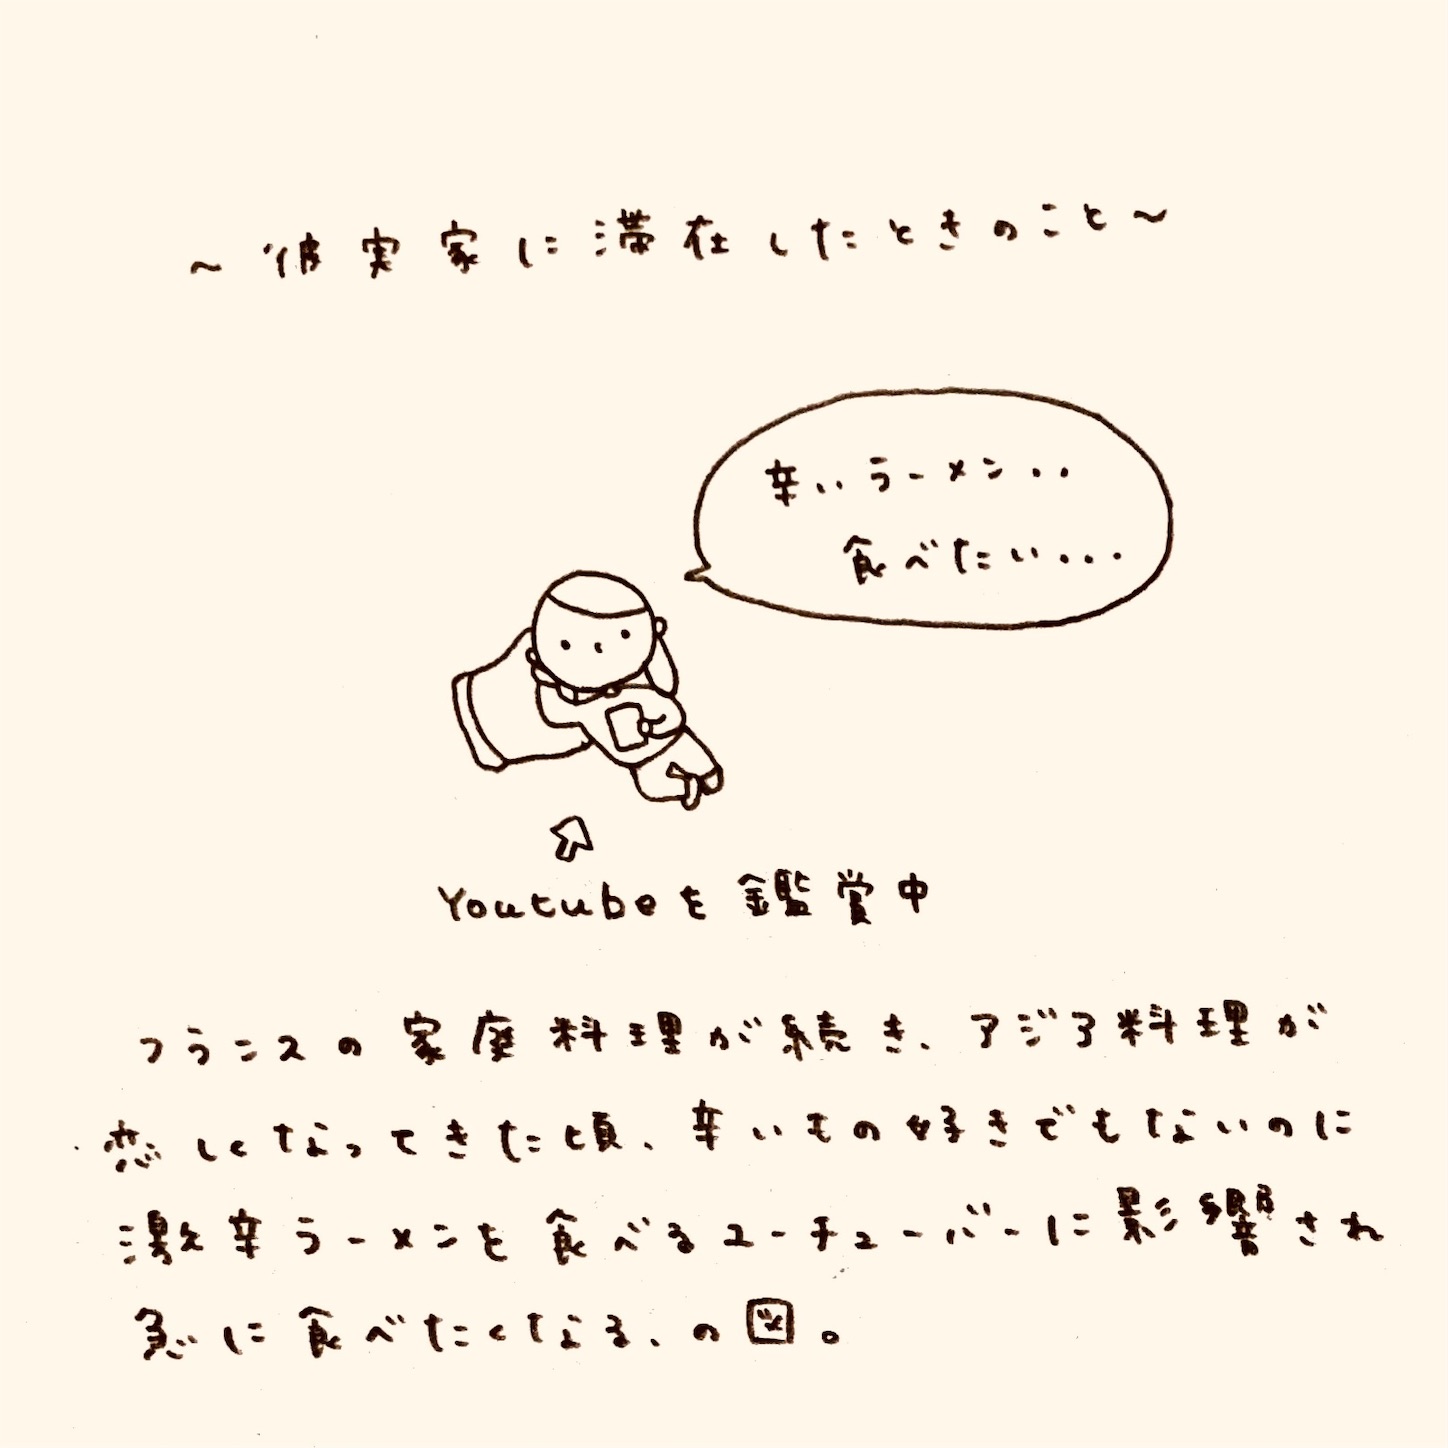 ～彼実家に滞在したときのこと～
辛いラーメン..
食べたい...
Youtubeを鑑賞中
フランスの家庭料理が続き、アジア料理が
恋しくなってきた頃、辛いもの好きでもないのに
激辛ラーメンを食べるユーチューバーに影響され
急に食べたくなる、の図。